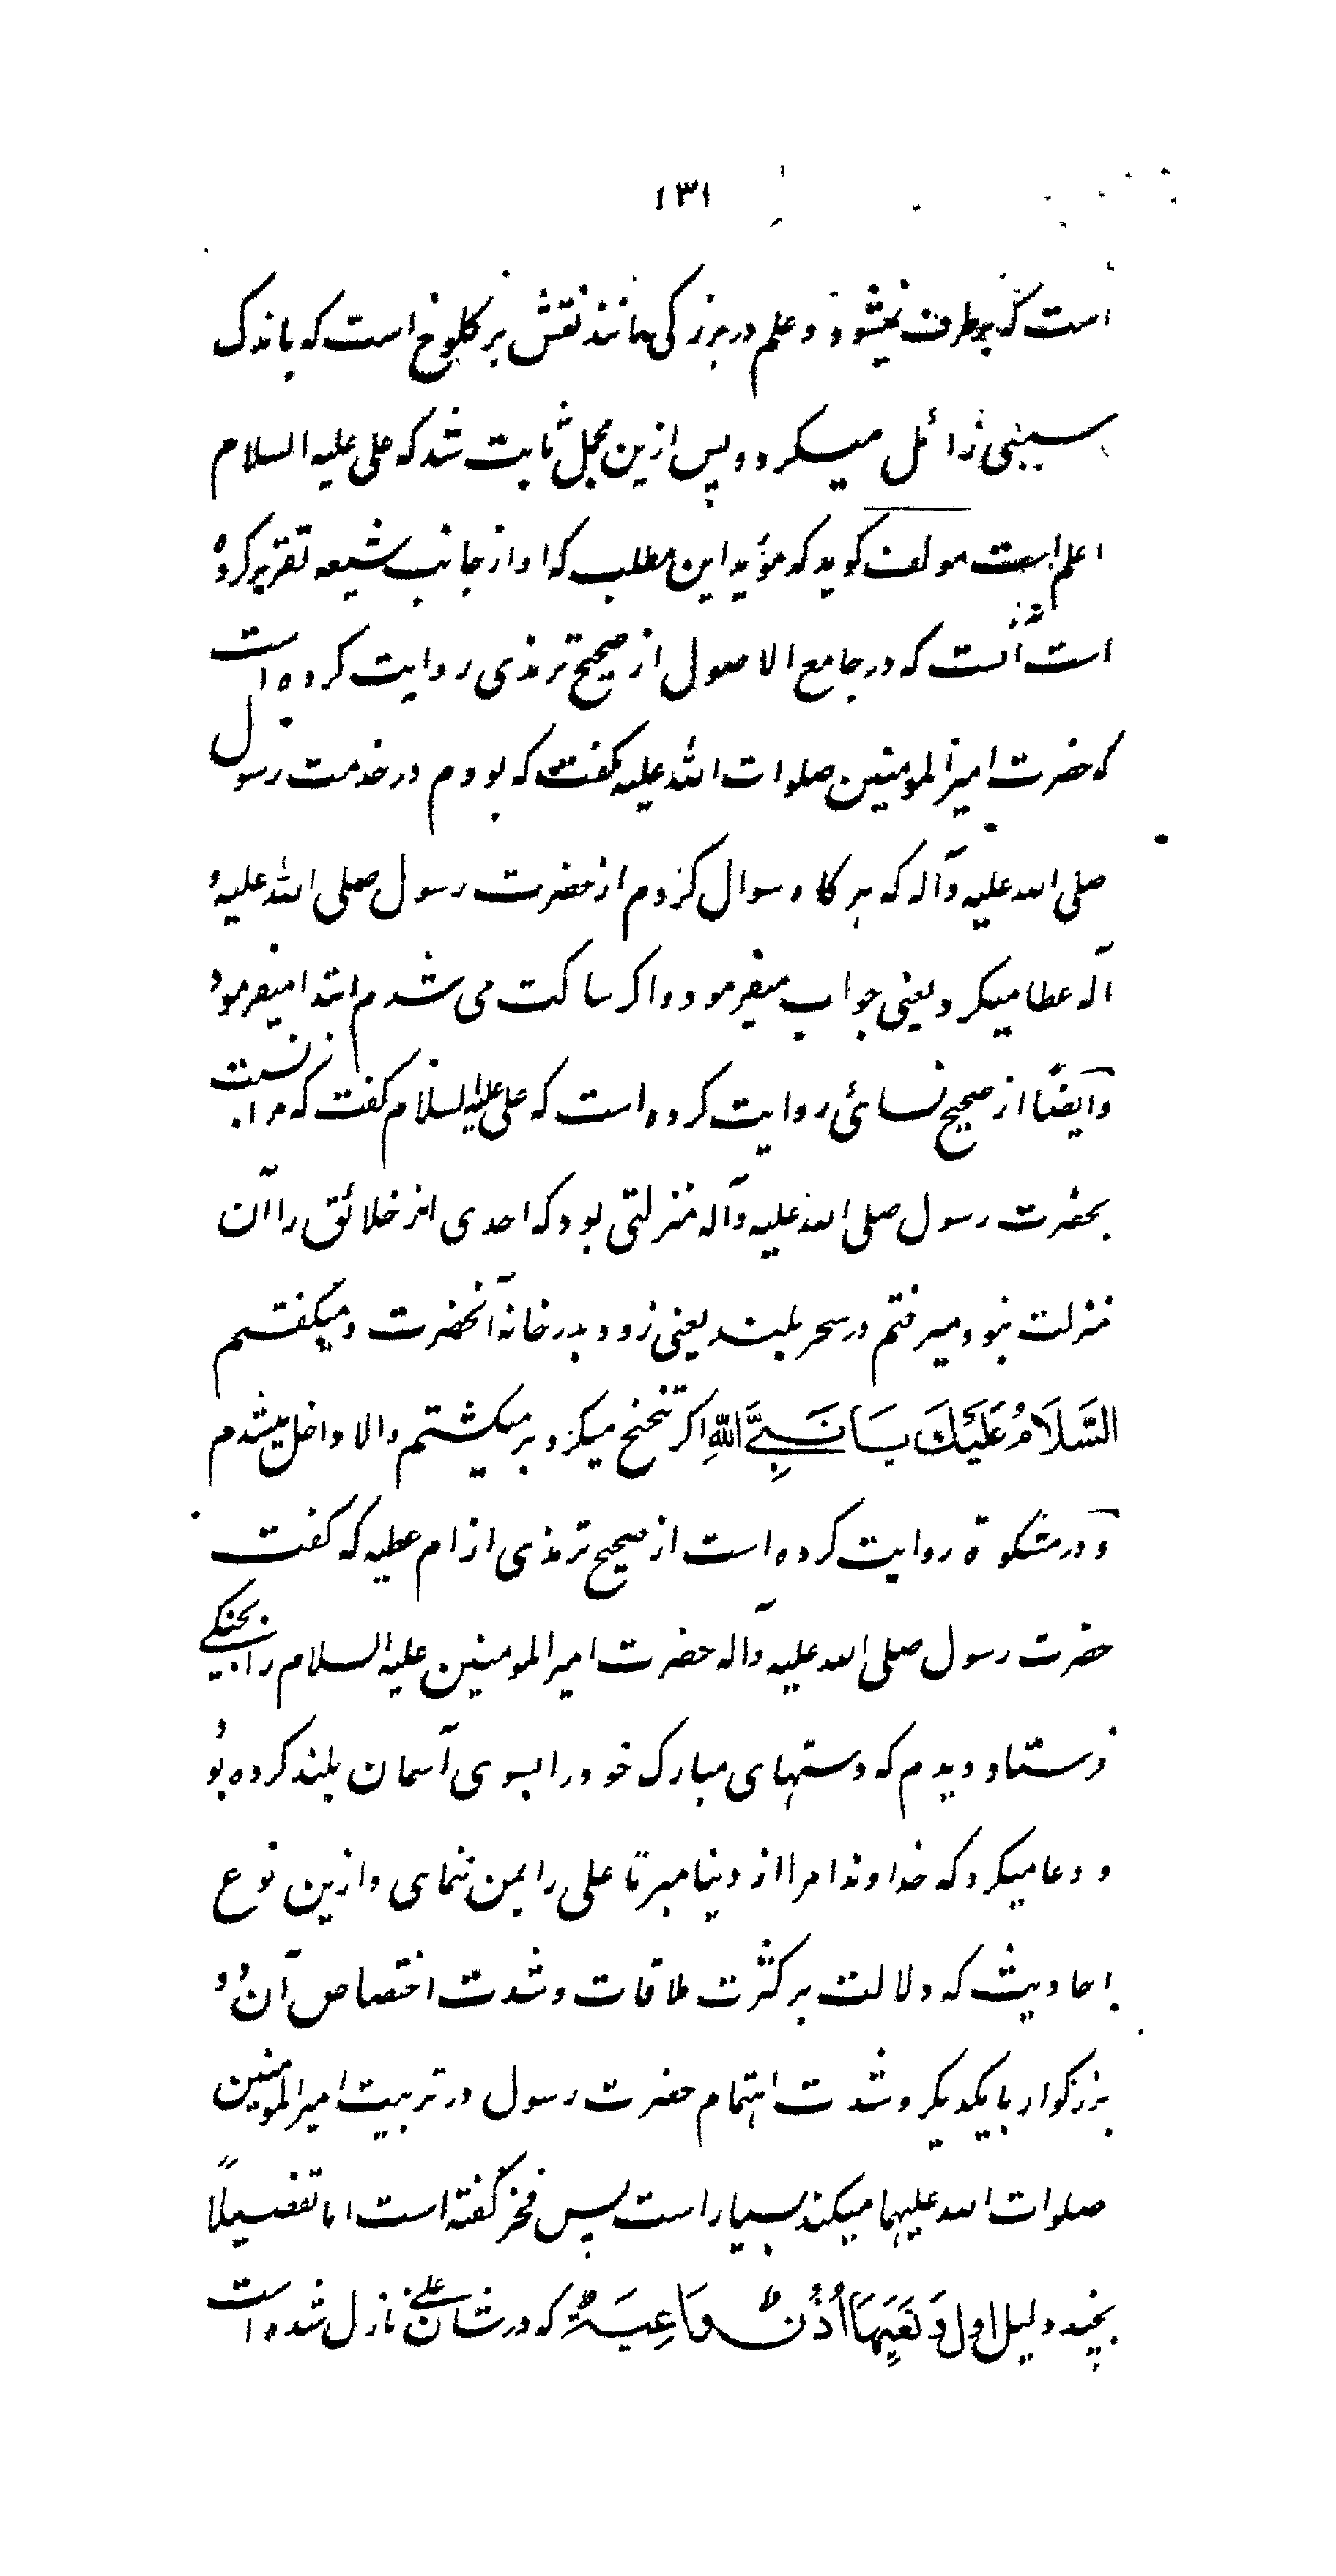 ۱۳۱
است که برطرف نمیشود و علم در بزرکی مانند نقش بر کلوخ است که باندک
سببی زائل میکردد و پس ازین مجمل ثابت شد که علی علیه السلام
اعلم است مولف کوید که مؤید این مطلب که او از جانب شیعه تقریر کرده
است آنست که در جامع الاصول از صحیح ترمذی روایت کرده است
که حضرت امیر المومنین صلوات الله علیه کفت که بودم در خدمت رسول
صلی الله علیه وآله که هر کاه سوال کردم از حضرت رسول صلی الله علیه و
آله عطا میکرد یعنی جواب میفرمود و اکر ساکت می شدم ابتدا میفرمود
وایضًا از صحیح نسائی روایت کرده است که علی علیه السلام کفت که مرا نسبت
بحضرت رسول صلی الله علیه وآله منزلتی بود که احدی از خلائق را آن
منزلت نبود میرفتم در سحر بلند یعنی زود بدر خانه آنحضرت و میکفتم
السَّلَامُ عَلَیْكَ یَا نَبِیَّ اللّٰهِ اکر تنحنح میکرد بر میکشتم والا داخل میشدم
و در مشکوة روایت کرده است از صحیح ترمذی از ام عطیه که کفت
حضرت رسول صلی الله علیه وآله حضرت امیر المومنین علیه السلام را بجنکی
فرستاد دیدم که دستهای مبارک خود را بسوی آسمان بلند کرده بود
و دعا میکرد که خداوندا مرا از دنیا مبر تا علی را بمن ننمای و ازین نوع
احادیث که دلالت بر کثرت ملاقات و شدت اختصاص آن دو
بزرکوار با یکدیکر و شدت اهتمام حضرت رسول در تربیت امیر المومنین
صلوات الله علیهما میکند بسیار است پس فخر کفته است اما تفضیلًا
بچند دلیل اول وَتَعِیَهَا اُذُنٌ وَاعِیَةٌ که در شان علی نازل شده است